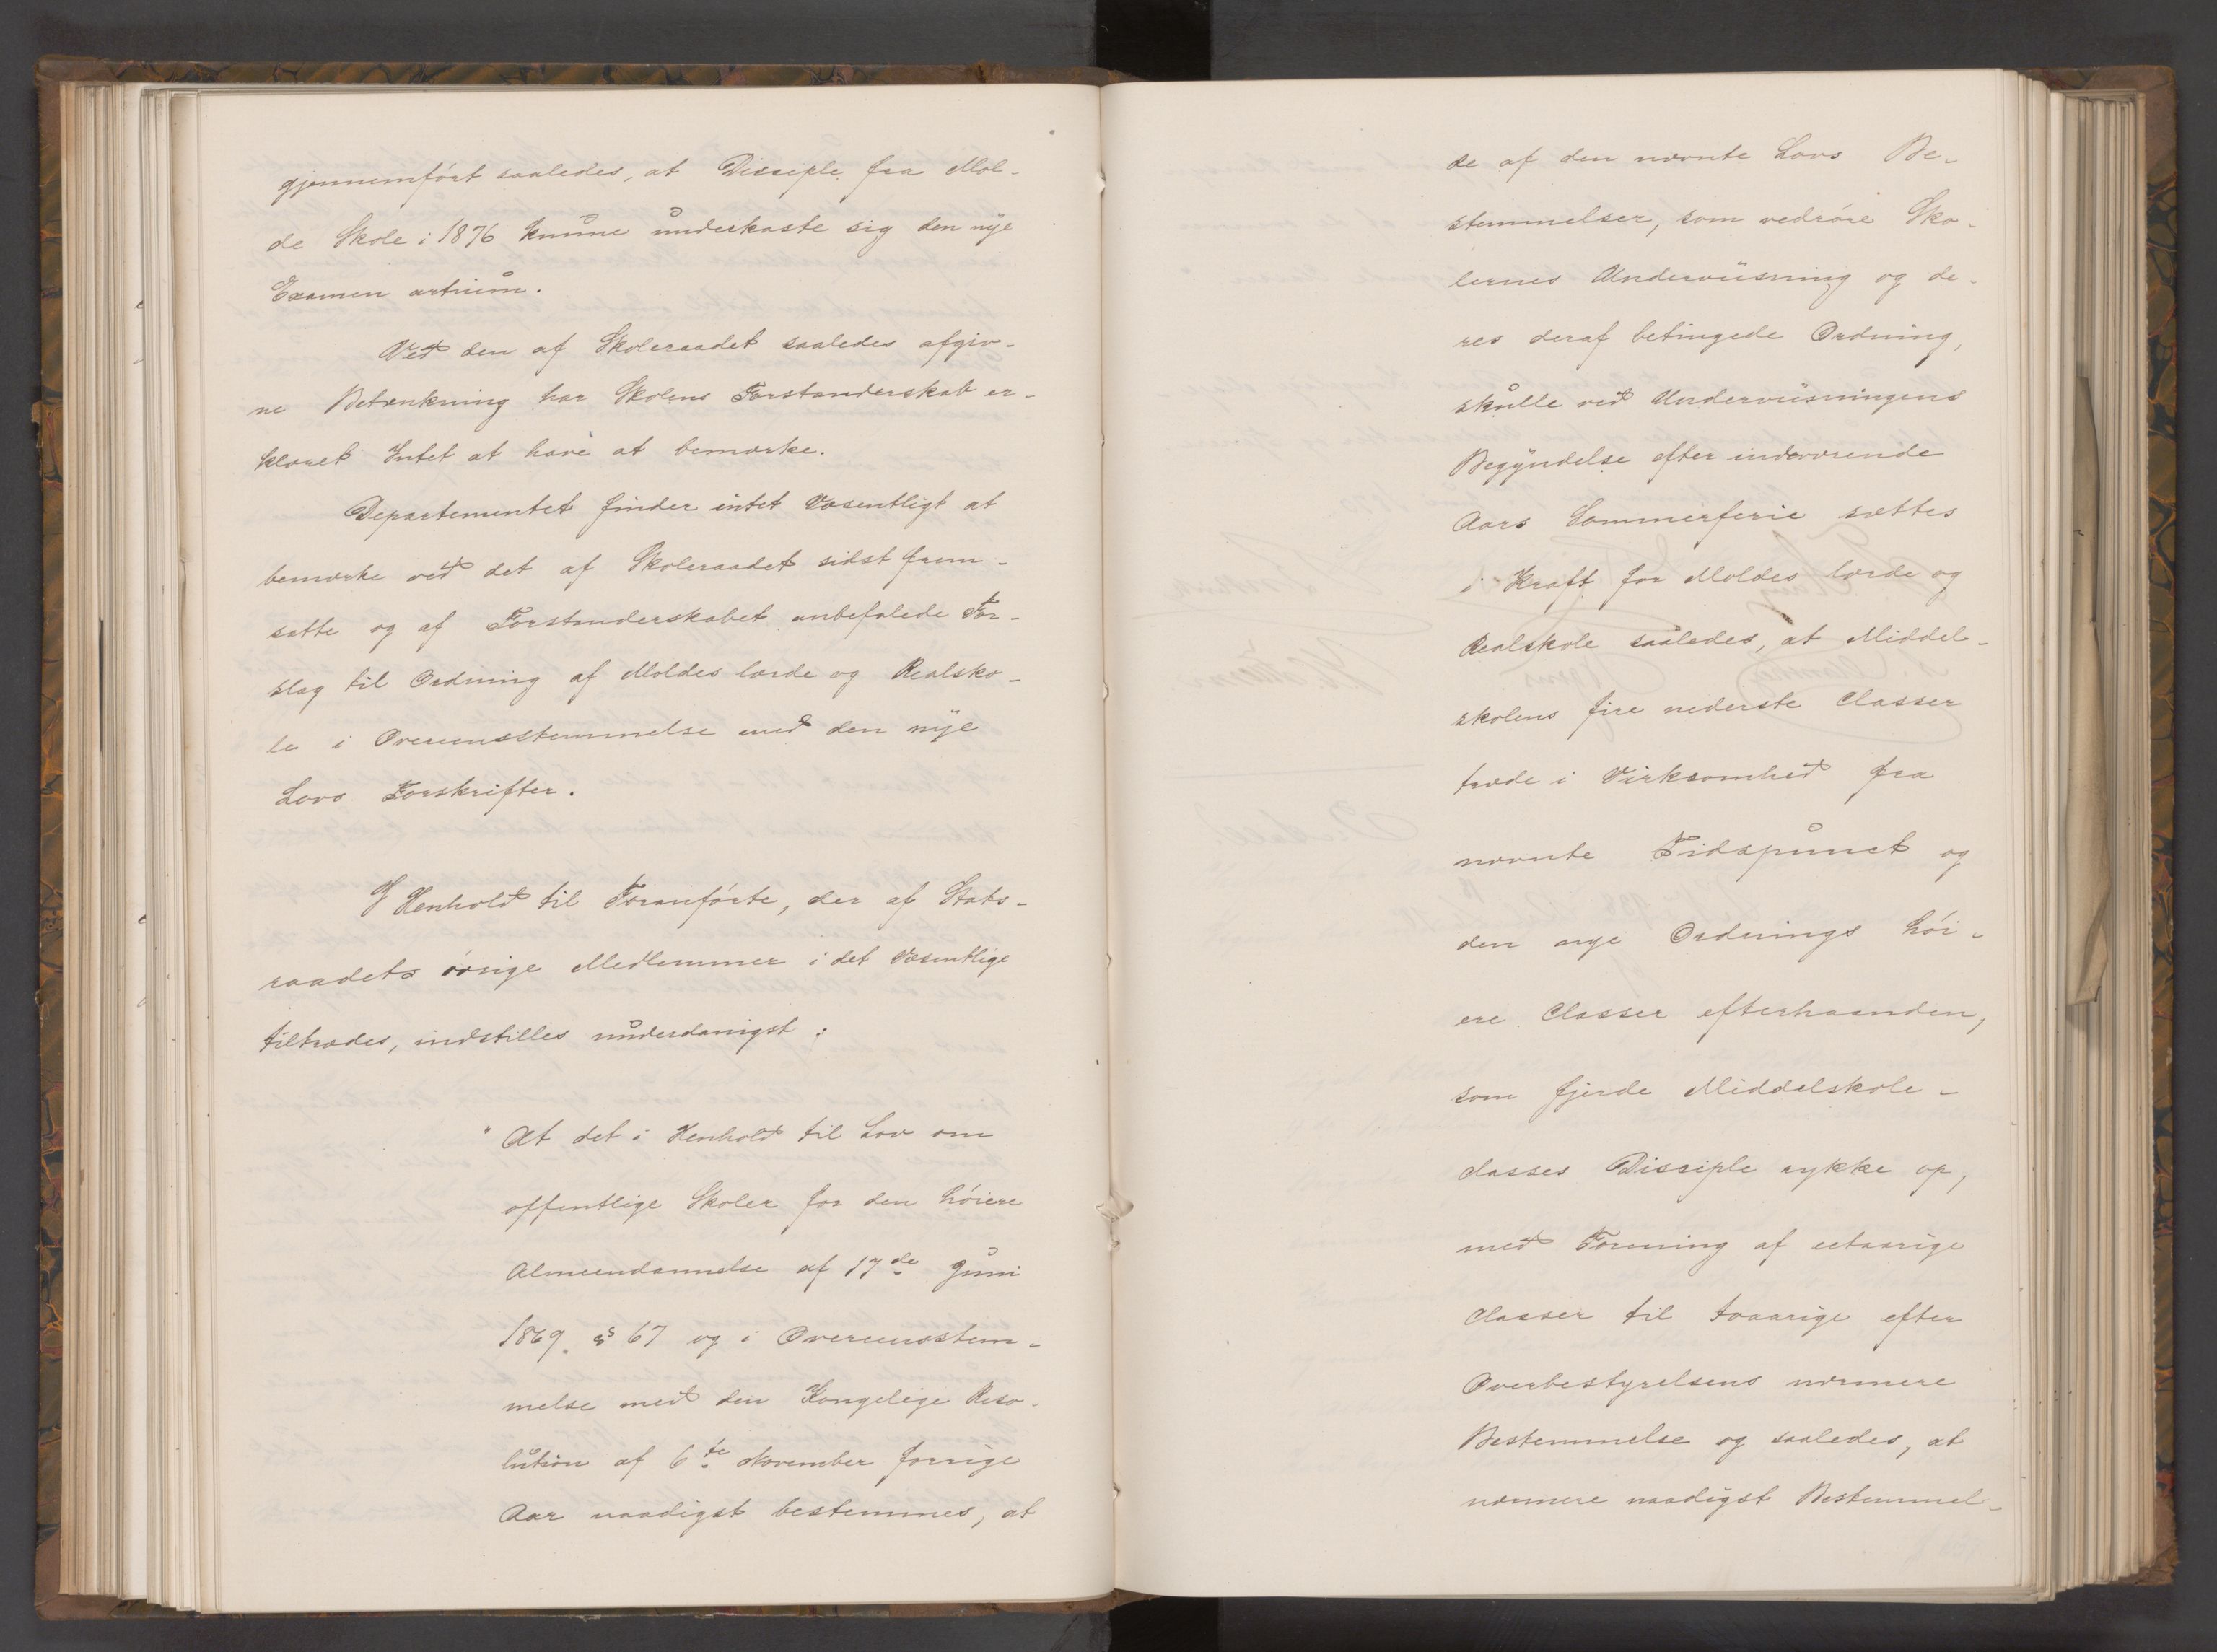 gjennemført saaledes, at Disciple fra Mol-
de Skole i 1876 kunne underkaste sig den nye
Examen artium.
Ved den af Skoleraadet saaledes afgiv-
ne Betænkning har Skolens Forstanderskab er-
klæret Intet at have at bemærke.
Departementet finder intet Væsentligt at
bemærke ved det af Skoleraadet sidst frem-
satte og af Forstanderskabet anbefalede For-
slag til Ordning af Moldes lærde og Realsko-
le i Overeensstemmelse med den nye
Lovs Forskrifter.
I Henhold til Foranførte, der af Stats-
raadets øvrige Medlemmer i det Væsentlige
tiltrædes, indstilles underdanigst:
"At det i Henhold til Lov om
offentlige Skoler for den høiere
Almeendannelse af 17de Juni
1869 § 67 og i Overeensstem-
melse med den Kongelige Reso-
lution af 6te November forrige
Aar naadigst bestemmes, at
de af den nævnte Lovs Be-
stemmelser, som vedrøre Sko-
lernes Underviisning og de-
res deraf betingede Ordning,
skulle ved Underviisningens
Begyndelse efter indeværende
Aars Sommerferie sættes
i Kraft for Moldes lærde og
Realskole saaledes, at Middel-
skolens fire nederste Classer
træde i Virksomhed fra
nævnte Tidspunct og
den nye Ordnings høi-
ere Classer efterhaanden,
som fjerde Middelskole-
classes Disciple rykke op,
med Forening af eetaarige
Classer til toaarige efter
Overbestyrelsens nærmere
Bestemmelse og saaledes, at
nærmere naadigst Bestemmel-